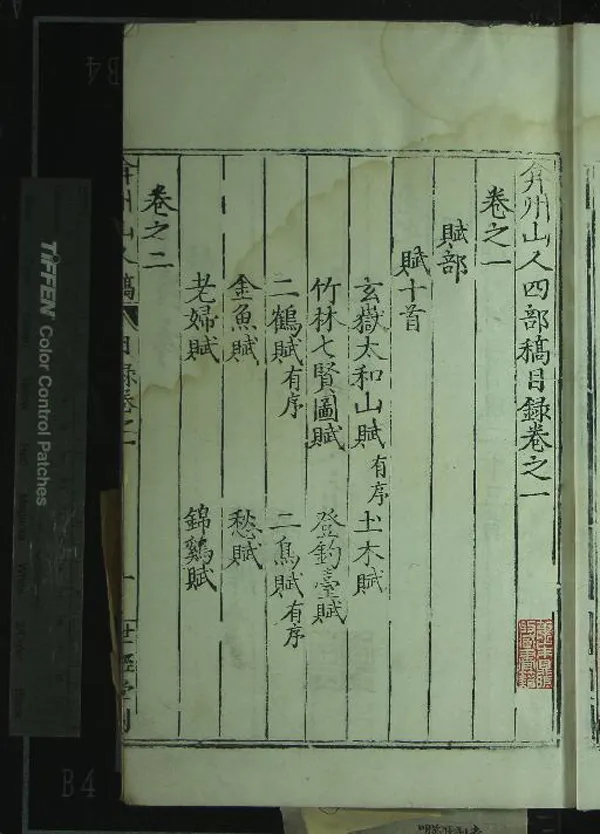 弇州山人四部稿目録卷之一
卷之一
賦部
賦十首
玄嶽太和山賦有序 土木賦
竹林七賢圖賦 登釣臺賦
二鶴賦有序 二鳥賦有序
金魚賦 愁賦
老婦賦 錦鷄賦
卷之二
弇州山人稿 目録卷之一 一 世經堂刊
TIFFEN Color Control Patches
B4
B4